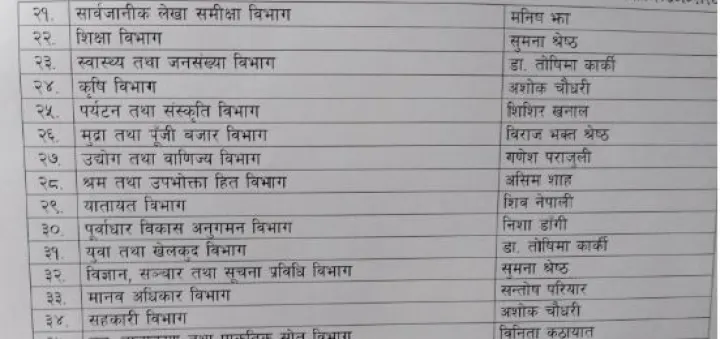 २१. सार्वजानीक लेखा समीक्षा विभाग मनिष झा
२२. शिक्षा विभाग सुमना श्रेष्ठ
२३. स्वास्थ्य तथा जनसंख्या विभाग डा. तोषिमा कार्की
२४. कृषि विभाग अशोक चौधरी
२५. पर्यटन तथा संस्कृति विभाग शिशिर खनाल
२६. मुद्रा तथा पूँजी बजार विभाग बिराज भक्त श्रेष्ठ
२७. उद्योग तथा वाणिज्य विभाग गणेश पराजुली
२८. श्रम तथा उपभोक्ता हित विभाग असिम शाह
२९. यातायत विभाग शिव नेपाली
३०. पूर्वाधार विकास अनुगमन विभाग निशा डाँगी
३१. युवा तथा खेलकुद विभाग डा. तोषिमा कार्की
३२. विज्ञान, सञ्चार तथा सूचना प्रविधि विभाग सुमना श्रेष्ठ
३३. मानव अधिकार विभाग सन्तोष परियार
३४. सहकारी विभाग अशोक चौधरी
तथा प्राकृतिक स्रोत विभाग विनिता कठायात